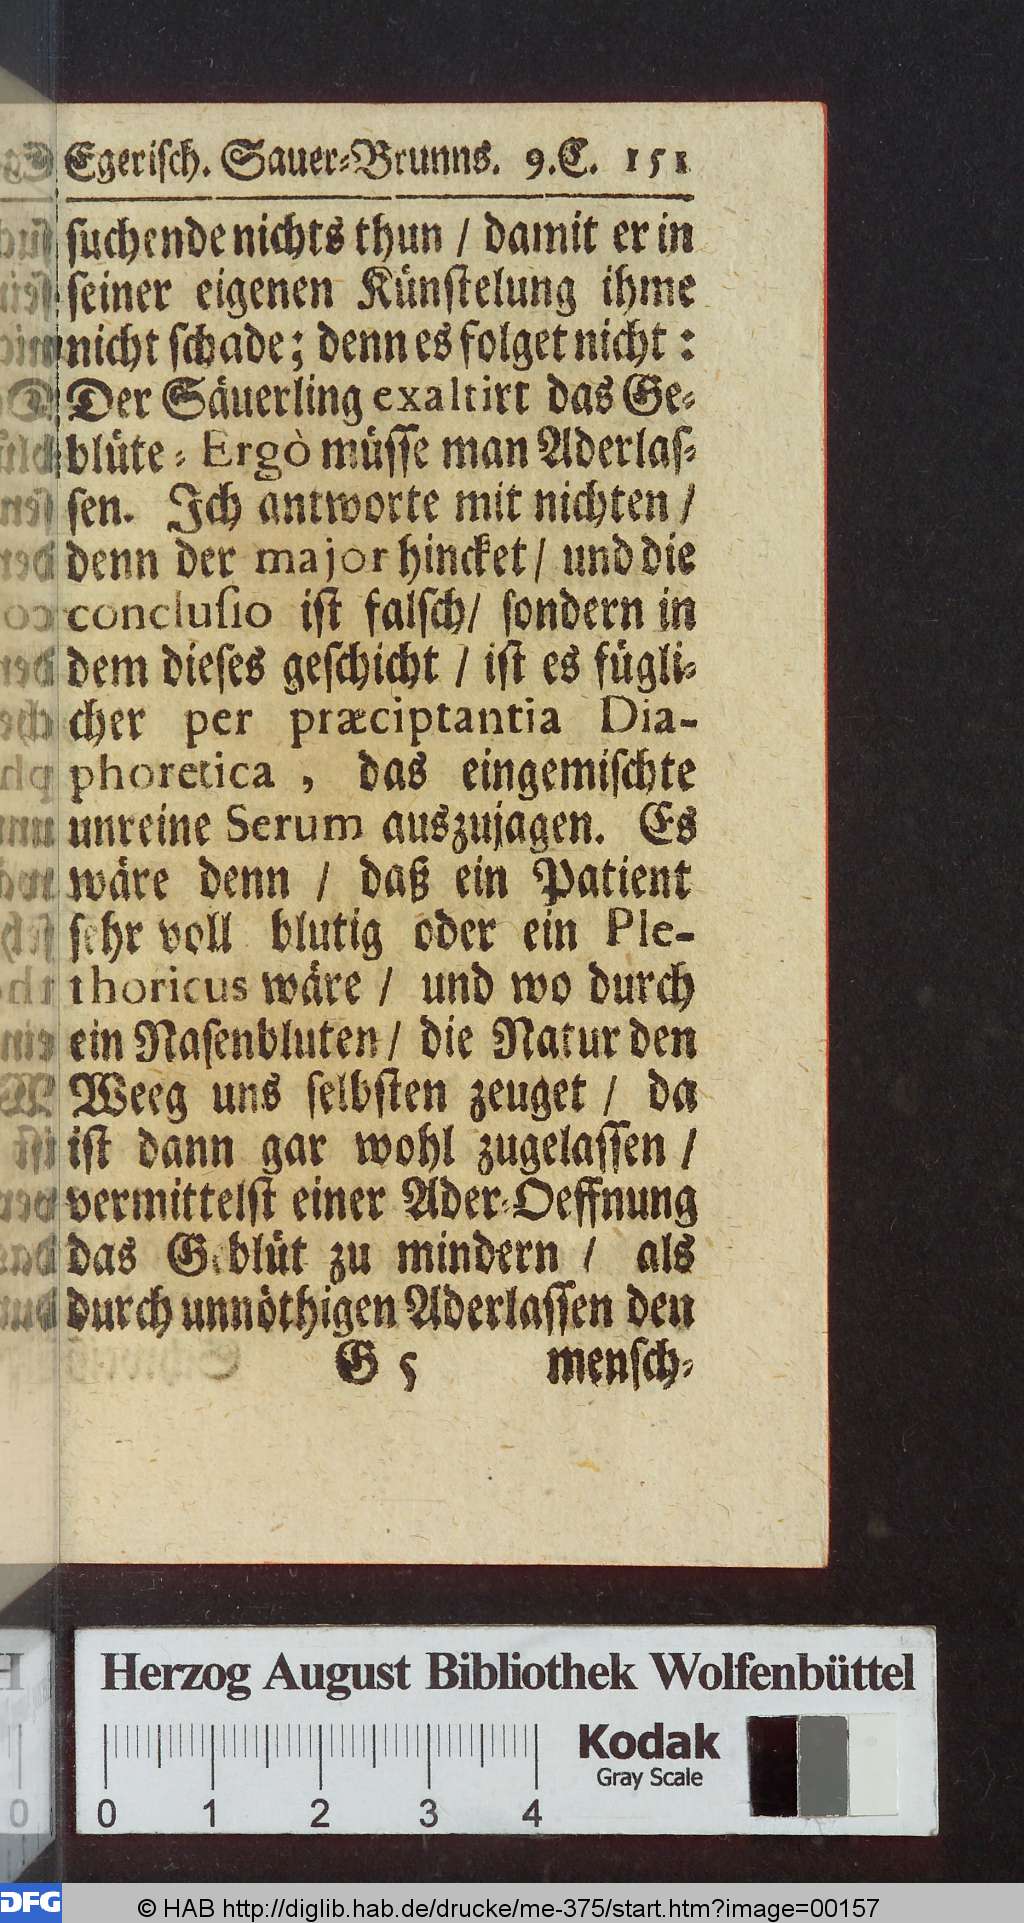 Egerisch. Sauer-Brunns. 9.C. 151
suchende nichts thun / damit er in
seiner eigenen Künstelung ihme
nicht schade; denn es folget nicht:
Der Säuerling exaltirt das Ge-
blüte - Ergò müsse man Aderlas-
sen. Ich antworte mit nichten /
denn der major hincket / und die
conclusio ist falsch / sondern in
dem dieses geschicht / ist es fügli-
cher per præciptantia Dia-
phoretica, das eingemischte
unreine Serum auszujagen. Es
wäre denn / daß ein Patient
sehr voll blutig oder ein Ple-
thoricus wäre / und wo durch
ein Nasenbluten / die Natur den
Weeg uns selbsten zeuget / da
ist dann gar wohl zugelassen /
vermittelst einer Ader-Oeffnung
das Geblüt zu mindern / als
durch unnöthigen Aderlassen den
G 5 mensch-
Herzog August Bibliothek Wolfenbüttel
Kodak
Gray Scale
0 0 1 2 3 4
DFG © HAB http://diglib.hab.de/drucke/me-375/start.htm?image=00157